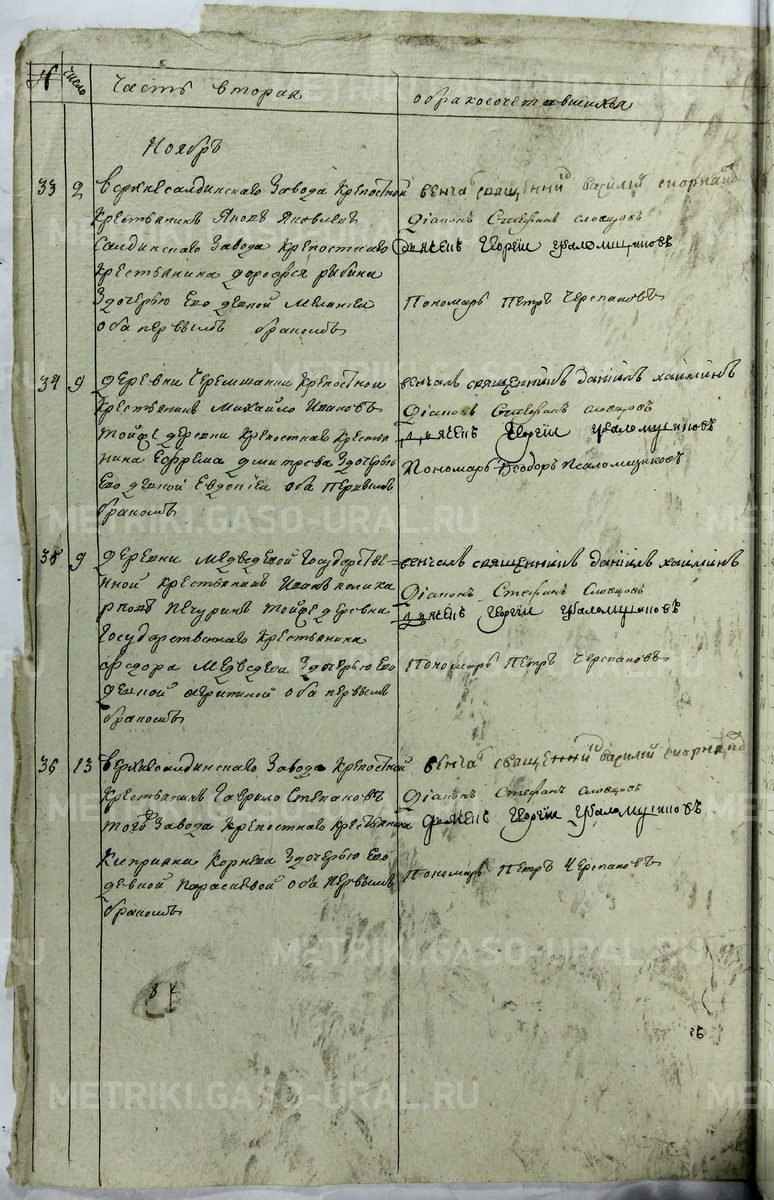 № число Часть вторая о бракосочетавшихся
Ноябрь
33 2 Верхнесалдинскаго Завода Крепостной
Крестьянинъ Яковъ Яковлевъ
Салдинскаго Завода Крепостнаго
Крестьянина Рыбина
Здочерью Его девкой
оба первымъ бракомъ
Венча священник Василий
Диаконъ Стефанъ Словцовъ
Дьячекъ Георгий
Пономарь Петръ Черепановъ
34 9 Деревни Черемшанки Крепостной
Крестьянинъ Михайло Ивановъ
тойже деревни Крепостнаго Крестья
нина Ефрема Дмитрева Здочерью
Его девкой Евдокией оба первымъ
бракомъ
венчалъ священникъ Данилъ Хаминъ
Диаконъ Стефанъ Словцовъ
Дьячекъ Георгий
Пономарь Феодоръ Псаломщиковъ
35 9 Деревни Медведевой Государстве=
нной Крестьянинъ Иванъ
Печуринъ тойже деревни
Государственнаго Крестьянина
Федора Медведева Здочерью Его
девкой оба первымъ
бракомъ
венчалъ священникъ Данилъ Хаминъ
Диаконъ Стефанъ Словцовъ
Дьячекъ Георгий
Пономарь Петръ Черепановъ
36 13 Верхнесалдинскаго Завода Крепостной
Крестьянинъ Гаврило Степановъ
того Завода Крепостнаго Крестьянина
Киприяна Корнева Здочерью Его
девкой Параскевой оба первымъ
бракомъ
Венча священник Василий
Диаконъ Стефанъ Словцовъ
Дьячекъ Георгий
Пономарь Петръ Черепановъ
METRIKI.GASO-URAL.RU